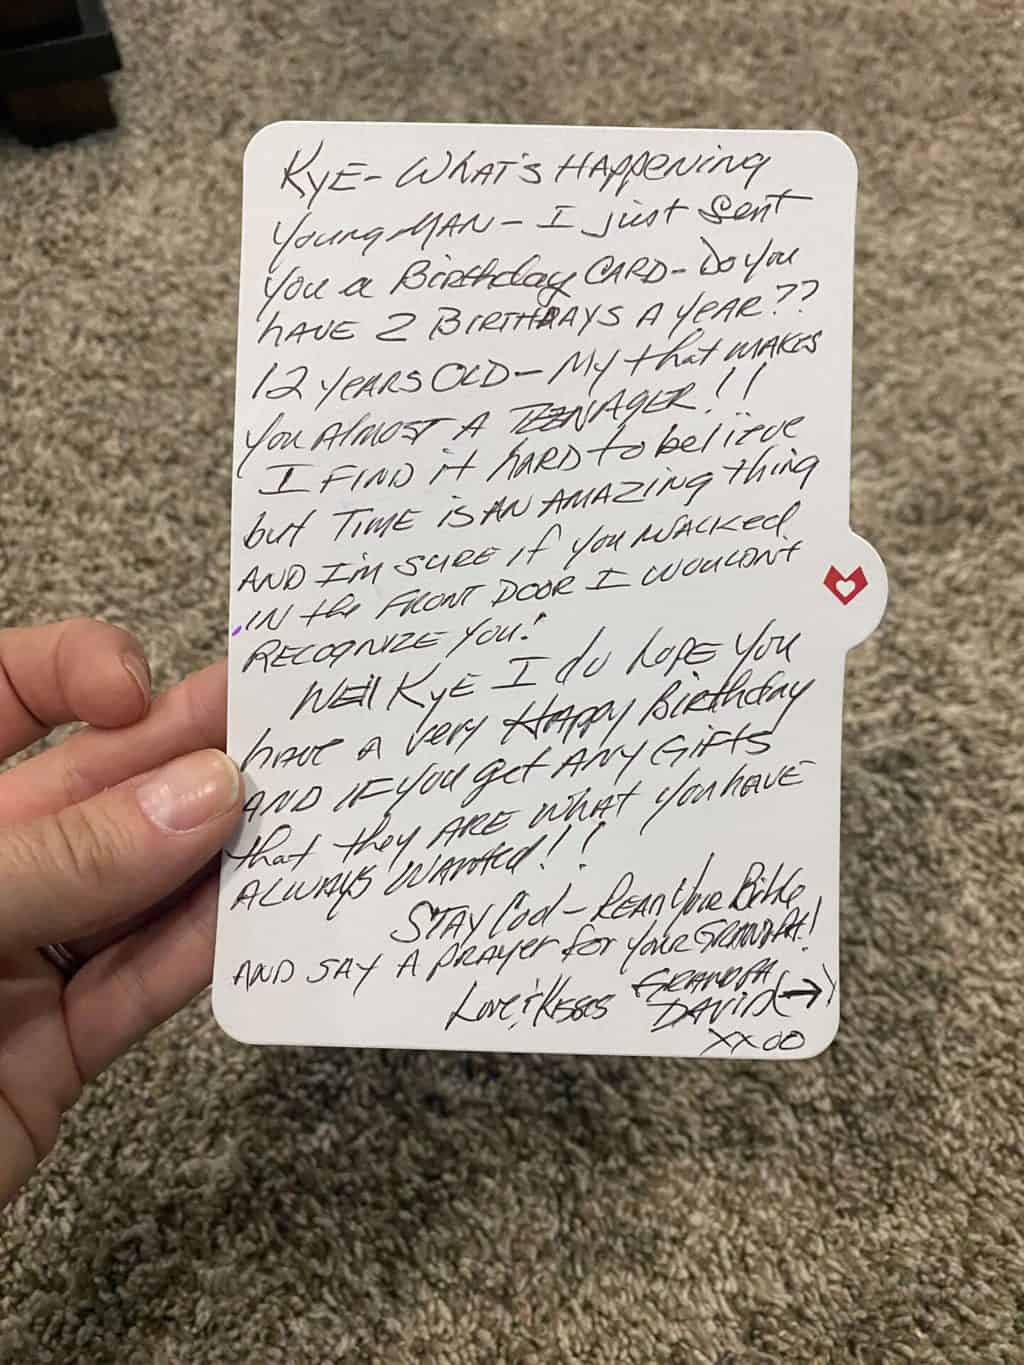 KYE- WHAT'S HAppENING
Young MAN - I just Sent
You a Birthday CARD- Do you
HAVE 2 BIRTHDAYS A YEAR??
12 YEARS OLD - My that MAKES
you AlmOST A TEENAGER!!
I FIND it hARD to believe
but TIME is AN AMAZING thing
AND I'm SURE if you WALKED
IN the FRONT DOOR I WOULDN'T
RECOGNIZE YOU!
WEll KYE I do hope you
hAVE A very HAppy Birthday
AND IF you get ANY GIFTS
that they ARE WhAt you HAVE
ALWAYS WANTED!!
STAY Cool - READ Your Bible
AND SAY A PRAYER for your GRANDPA!
Love & Kisses GRANDPA
DAVID →
XXOO